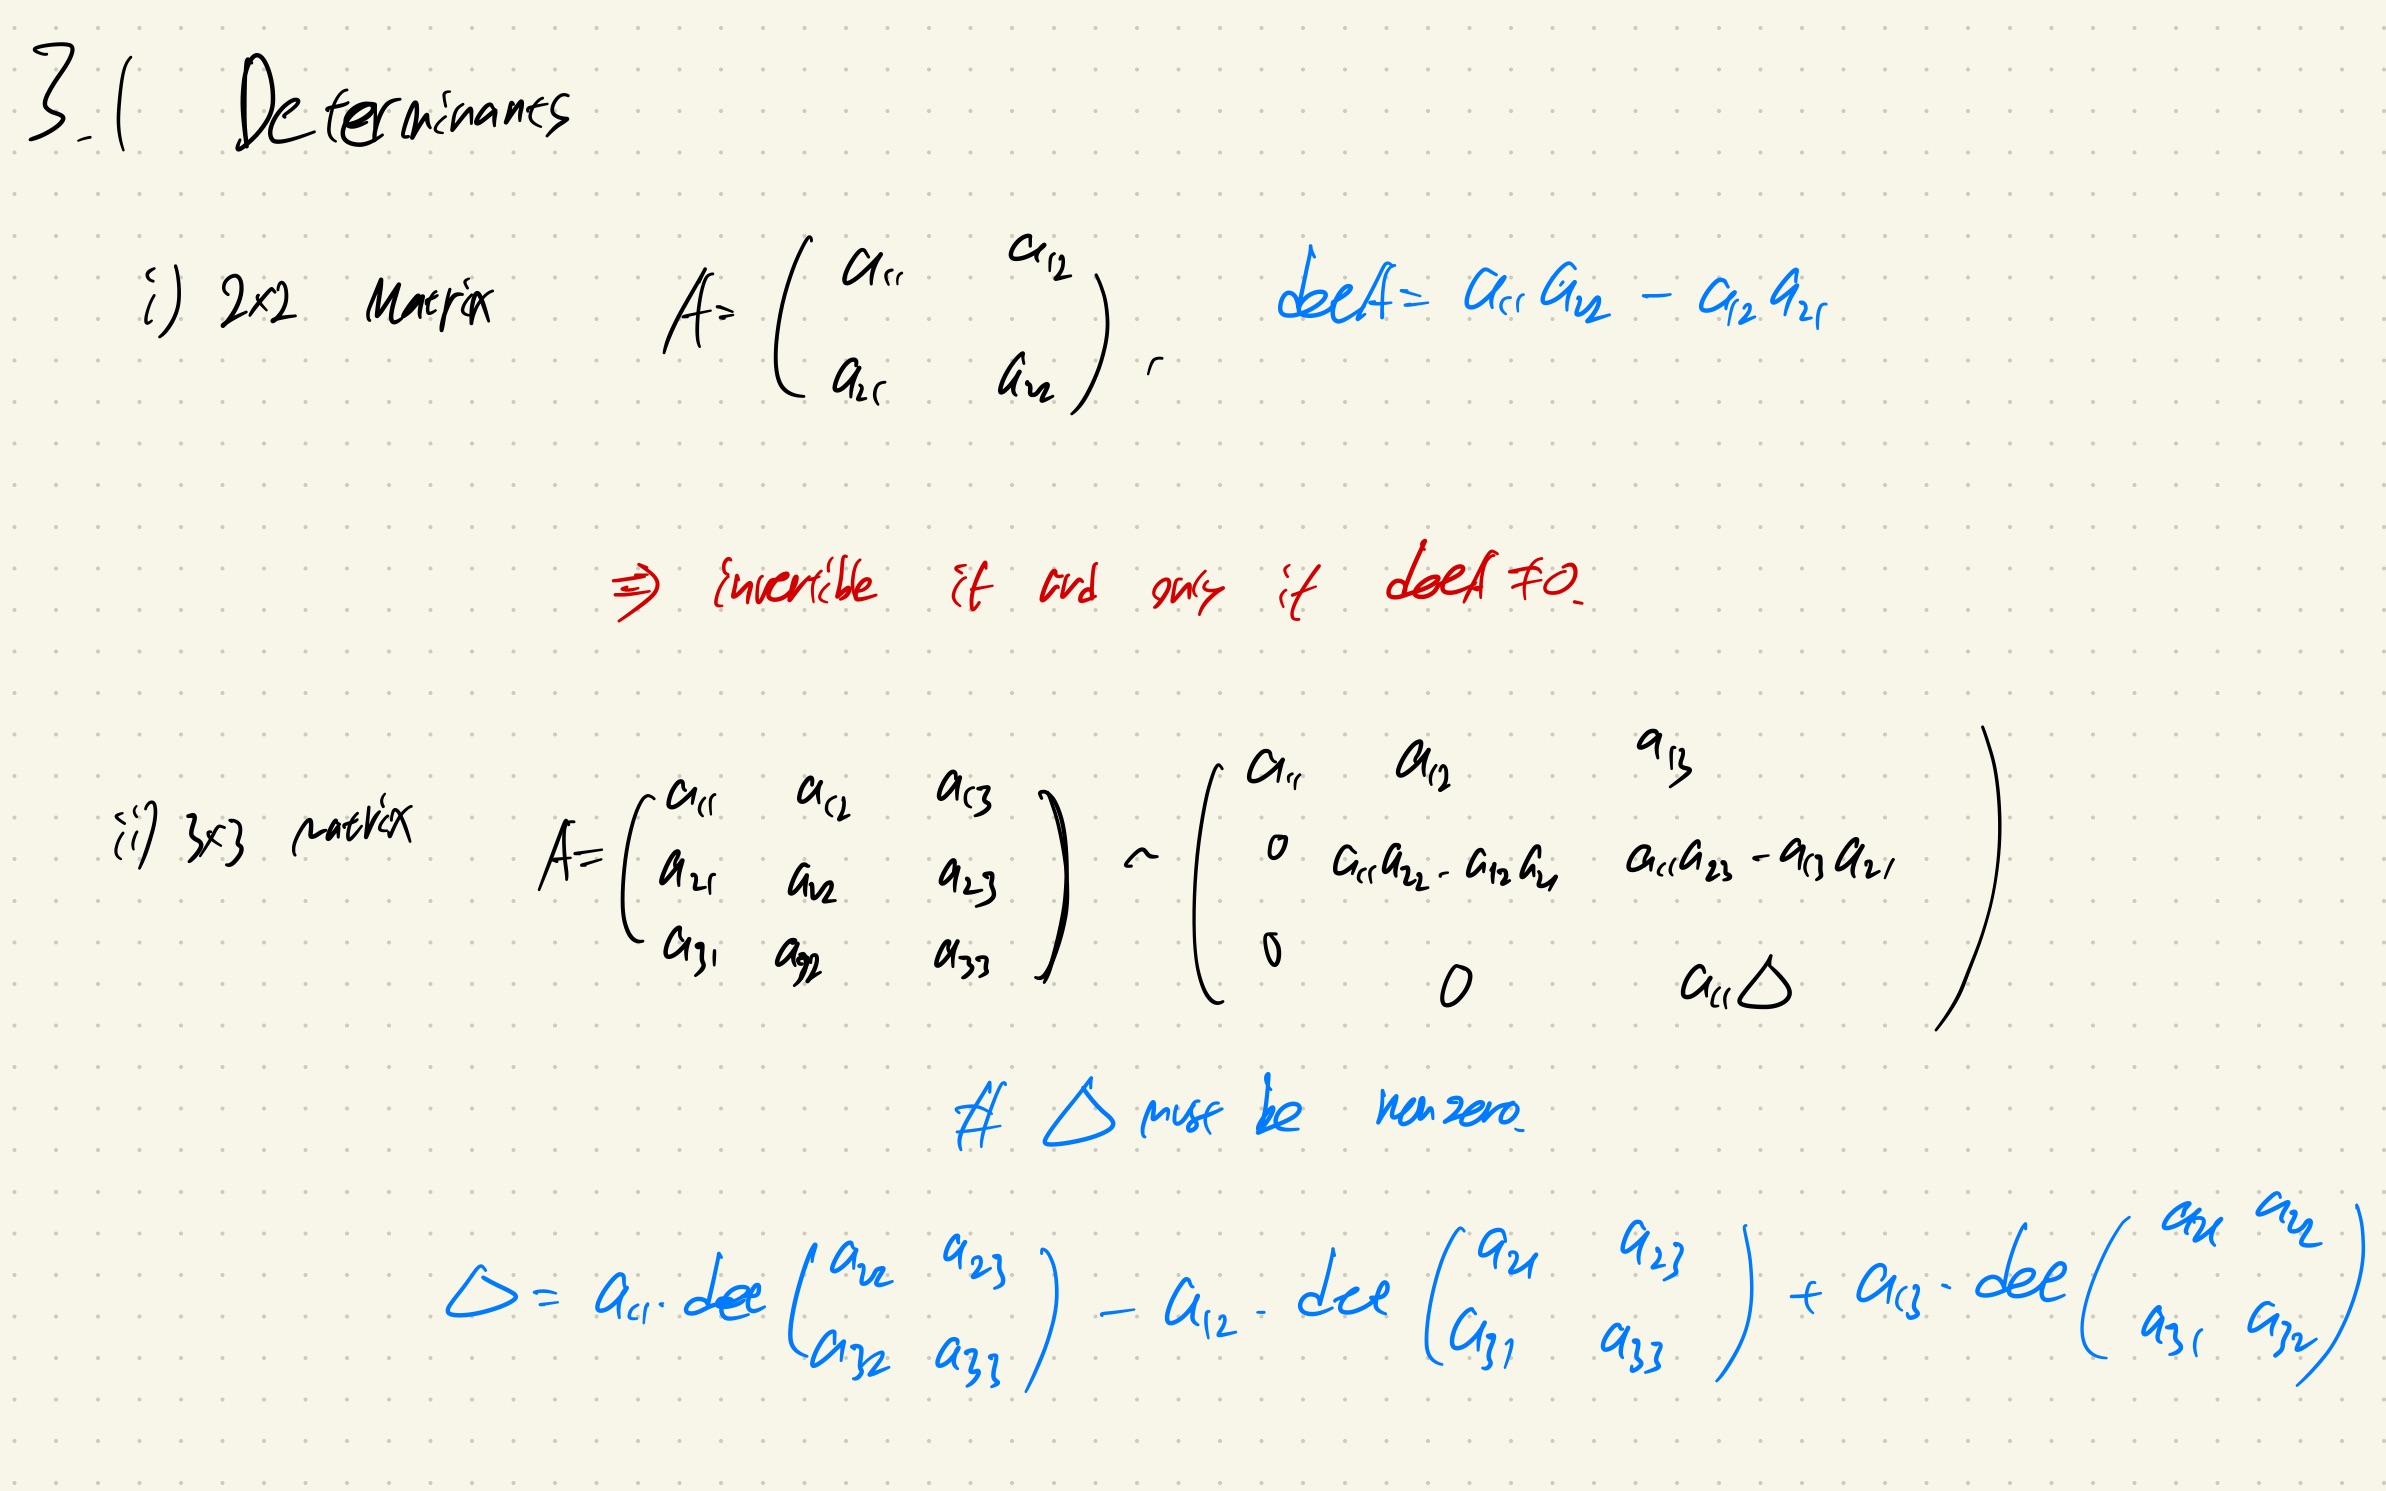 3.1 Determinants
i) 2×2 Matrix A = ( a₁₁ a₁₂
a₂₁ a₂₂ ), detA = a₁₁a₂₂ - a₁₂a₂₁
⇒ invertible if and only if detA ≠ 0.
ii) 3×3 matrix A = ( a₁₁ a₁₂ a₁₃ ~ ( a₁₁ a₁₂ a₁₃
a₂₁ a₂₂ a₂₃ 0 a₁₁a₂₂ - a₁₂a₂₁ a₁₁a₂₃ - a₁₃a₂₁
a₃₁ a₃₂ a₃₃ ) 0 0 a₁₁Δ )
# Δ must be nonzero.
Δ = a₁₁ · det ( a₂₂ a₂₃ - a₁₂ · det ( a₂₁ a₂₃ + a₁₃ · det ( a₂₁ a₂₂
a₃₂ a₃₃ ) a₃₁ a₃₃ ) a₃₁ a₃₂ )